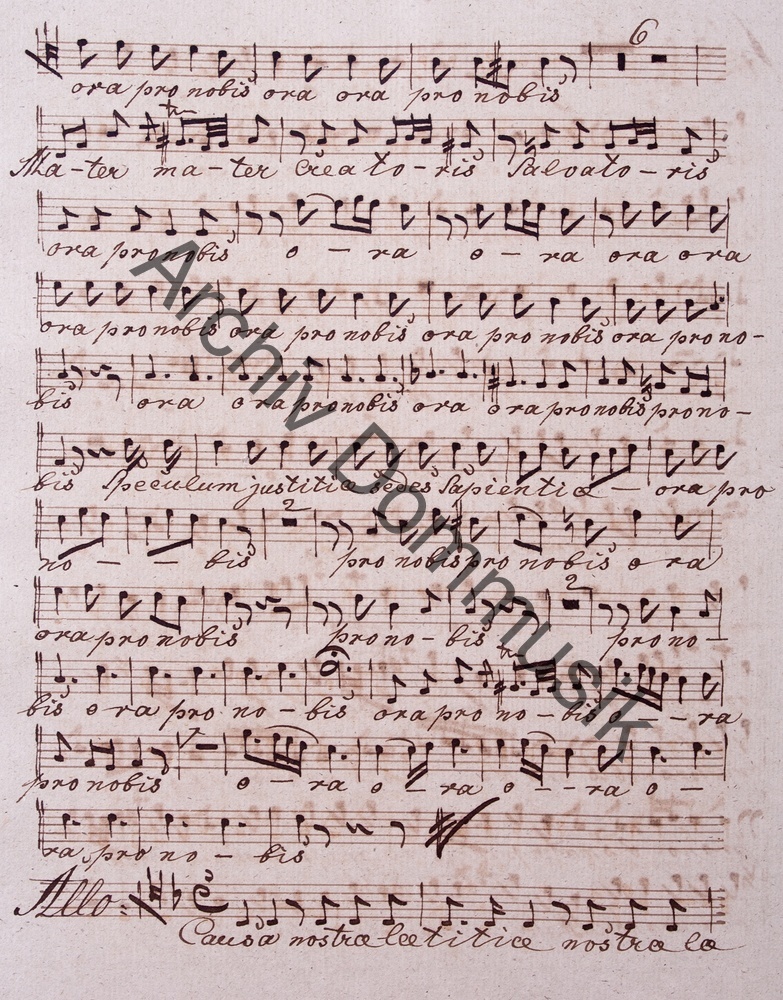 6
ora pro nobis ora ora pro nobis
tr
Ma-ter ma-ter Crea to-ris Salvato-ris
ora pro nobis o - ra o - ra ora ora
ora pro nobis ora pro nobis ora pro nobis ora pro no-
bis ora ora pro nobis ora ora pro nobis pro no-
bis Speculum justitiæ Sedes Sapientiæ - ora pro
2
no - - bis pro nobis pro nobis ora
2
ora pro nobis pro no-bis pro no-
tr
bis ora pro no-bis ora pro no-bis o - ra
pro nobis o - ra o - ra o - - ra o -
ra pro no - bis
Allo:
Causa nostræ lætitiæ nostræ læ
Archiv Dommusik